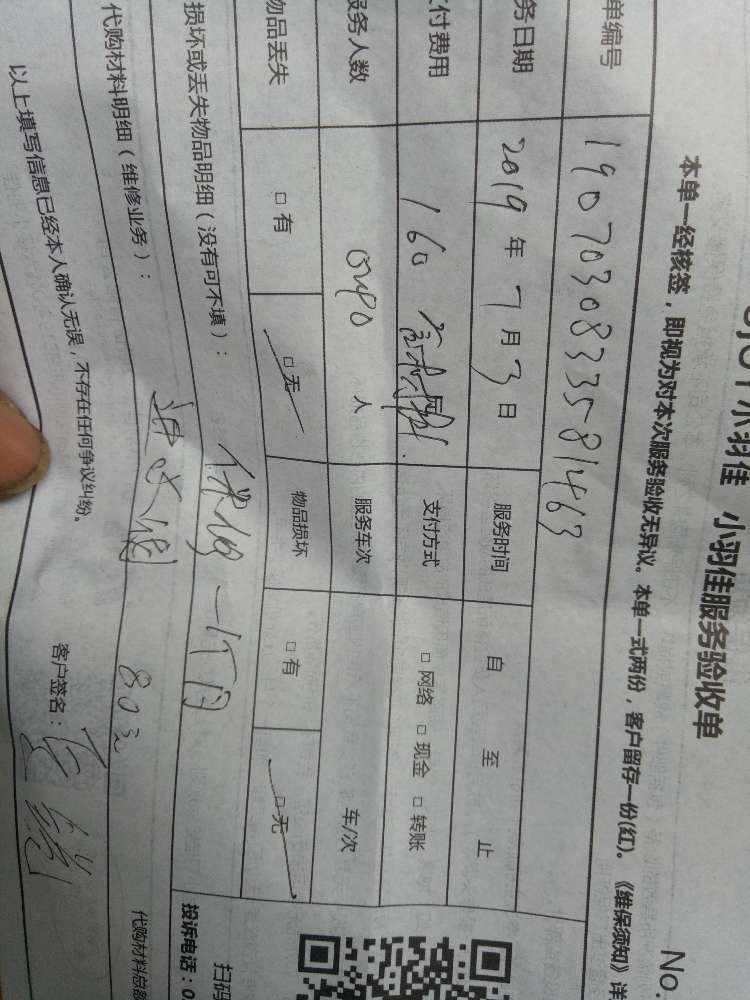 小羽佳 小羽佳服务验收单
No.
本单一经核签，即视为对本次服务验收无异议。本单一式两份，客户留存一份(红)。《维保须知》详
单编号 1907030833581463
务日期 2019 年 7 月 3 日 服务时间 自 至 止
付费用 160 支付方式 □ 网络 □ 现金 □ 转账
服务人数 人 服务车次 车/次
物品丢失 □ 有 □ 无 物品损坏 □ 有 □ 无
损坏或丢失物品明细（没有可不填）：
保修一个月
代购材料明细（维修业务）：
80元
代购材料总额
以上填写信息已经本人确认无误，不存在任何争议纠纷。
客户签名：
扫码
投诉电话：0